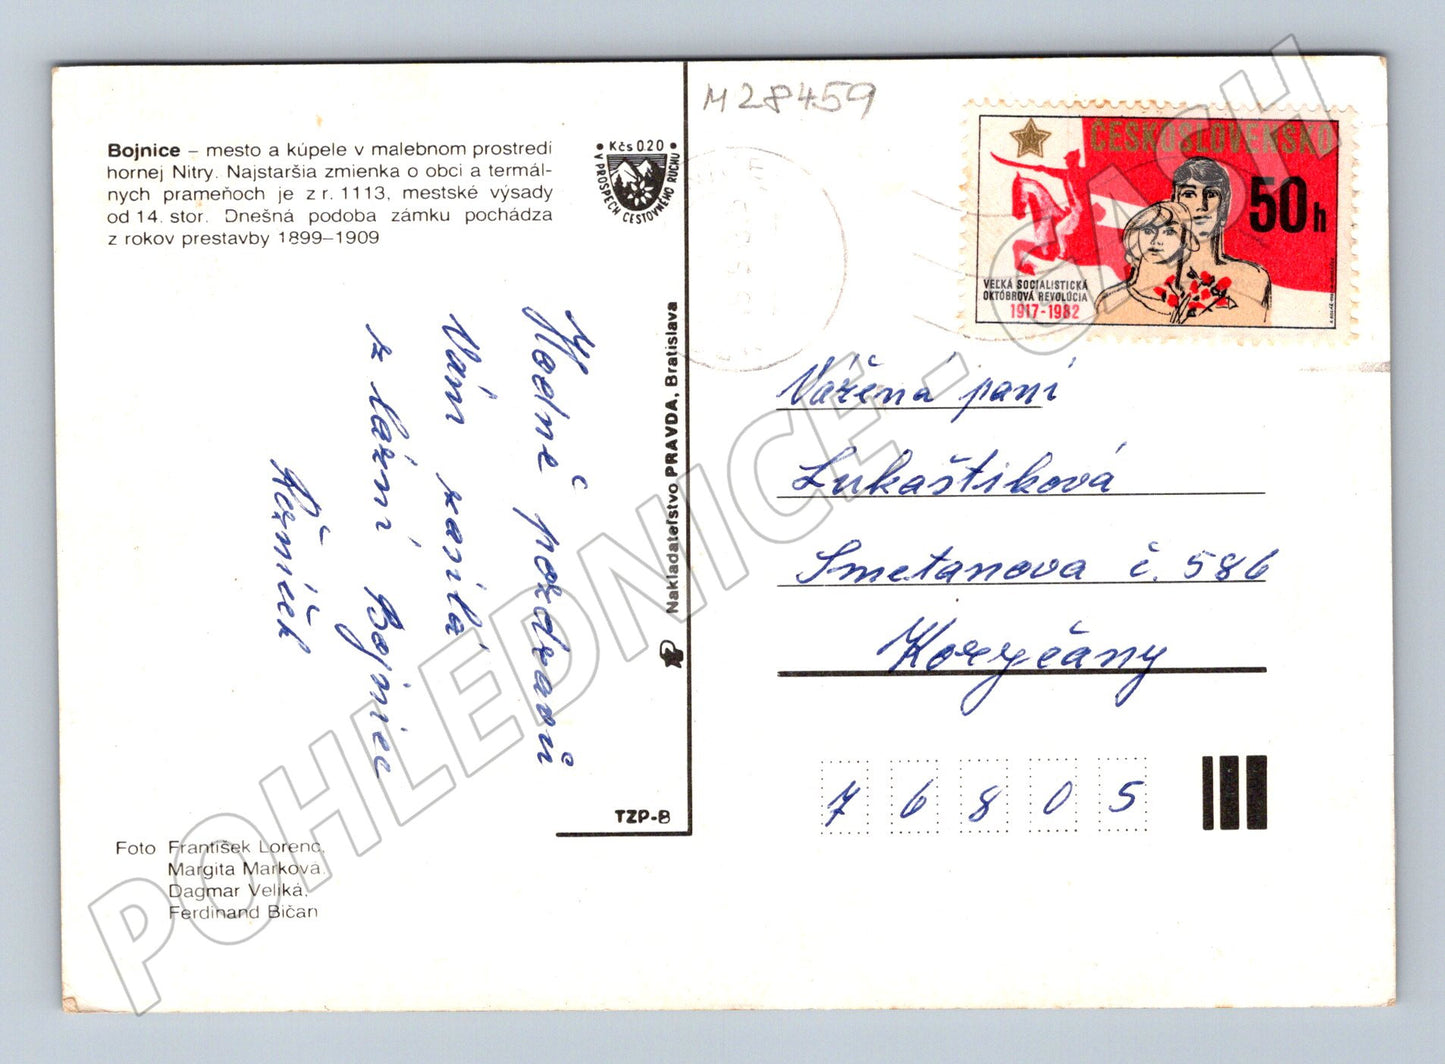 M28459
Bojnice – mesto a kúpele v malebnom prostredí
hornej Nitry. Najstaršia zmienka o obci a termál-
nych prameňoch je z r. 1113, mestské výsady
od 14. stor. Dnešná podoba zámku pochádza
z rokov prestavby 1899–1909
• Kčs 0.20 •
V PROSPECH CESTOVNÉHO RUCHU
ČESKOSLOVENSKO
50h
VEĽKÁ SOCIALISTICKÁ
OKTÓBROVÁ REVOLÚCIA
1917-1982
Hodně pozdravů
Vám zasílá
z lázní Bojnice
Řezníček
Nakladateľstvo PRAVDA, Bratislava
TZP-B
Vážená paní
Lukaštíková
Smetanova č. 586
Koryčany
7 6 8 0 5
Foto František Lorenc,
Margita Marková,
Dagmar Veliká,
Ferdinand Bičan
POHLEDNICE - CASH